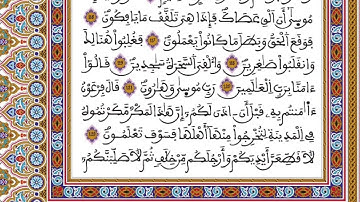 مُوسِىٰٓ أَنَ اَلْقِ عَصَاكَ فَإِذَا هِىَ تَلَقَّفُ مَا يَافِكُونَ
فَوَقَعَ اَلْحَقُّ وَبَطَلَ مَا كَانُواْ يَعْمَلُونَ فَغُلِبُواْ هُنَالِكَ
وَانقَلَبُواْ صَٰغِرِينَ وَأُلْقِىَ اَلسَّحَرَةُ سَٰجِدِينَ قَالُوٓاْ
ءَامَنَّا بِرَبِّ اِلْعَٰلَمِينَ رَبِّ مُوسِىٰ وَهَٰرُونَ قَالَ فِرْعَوْنُ
ءَاٰمَنتُم بِهِۦ قَبْلَ أَنَ اٰذَنَ لَكُمُۥٓ إِنَّ هَٰذَا لَمَكْرٌ مَّكَرْتُمُوهُ
فِى اِلْمَدِينَةِ لِتُخْرِجُواْ مِنْهَآ أَهْلَهَا فَسَوْفَ تَعْلَمُونَ
لَأُقَطِّعَنَّ أَيْدِيَكُمْ وَأَرْجُلَكُم مِّنْ خِلَٰفٍ ثُمَّ لَأُصَلِّبَنَّكُمُۥٓ